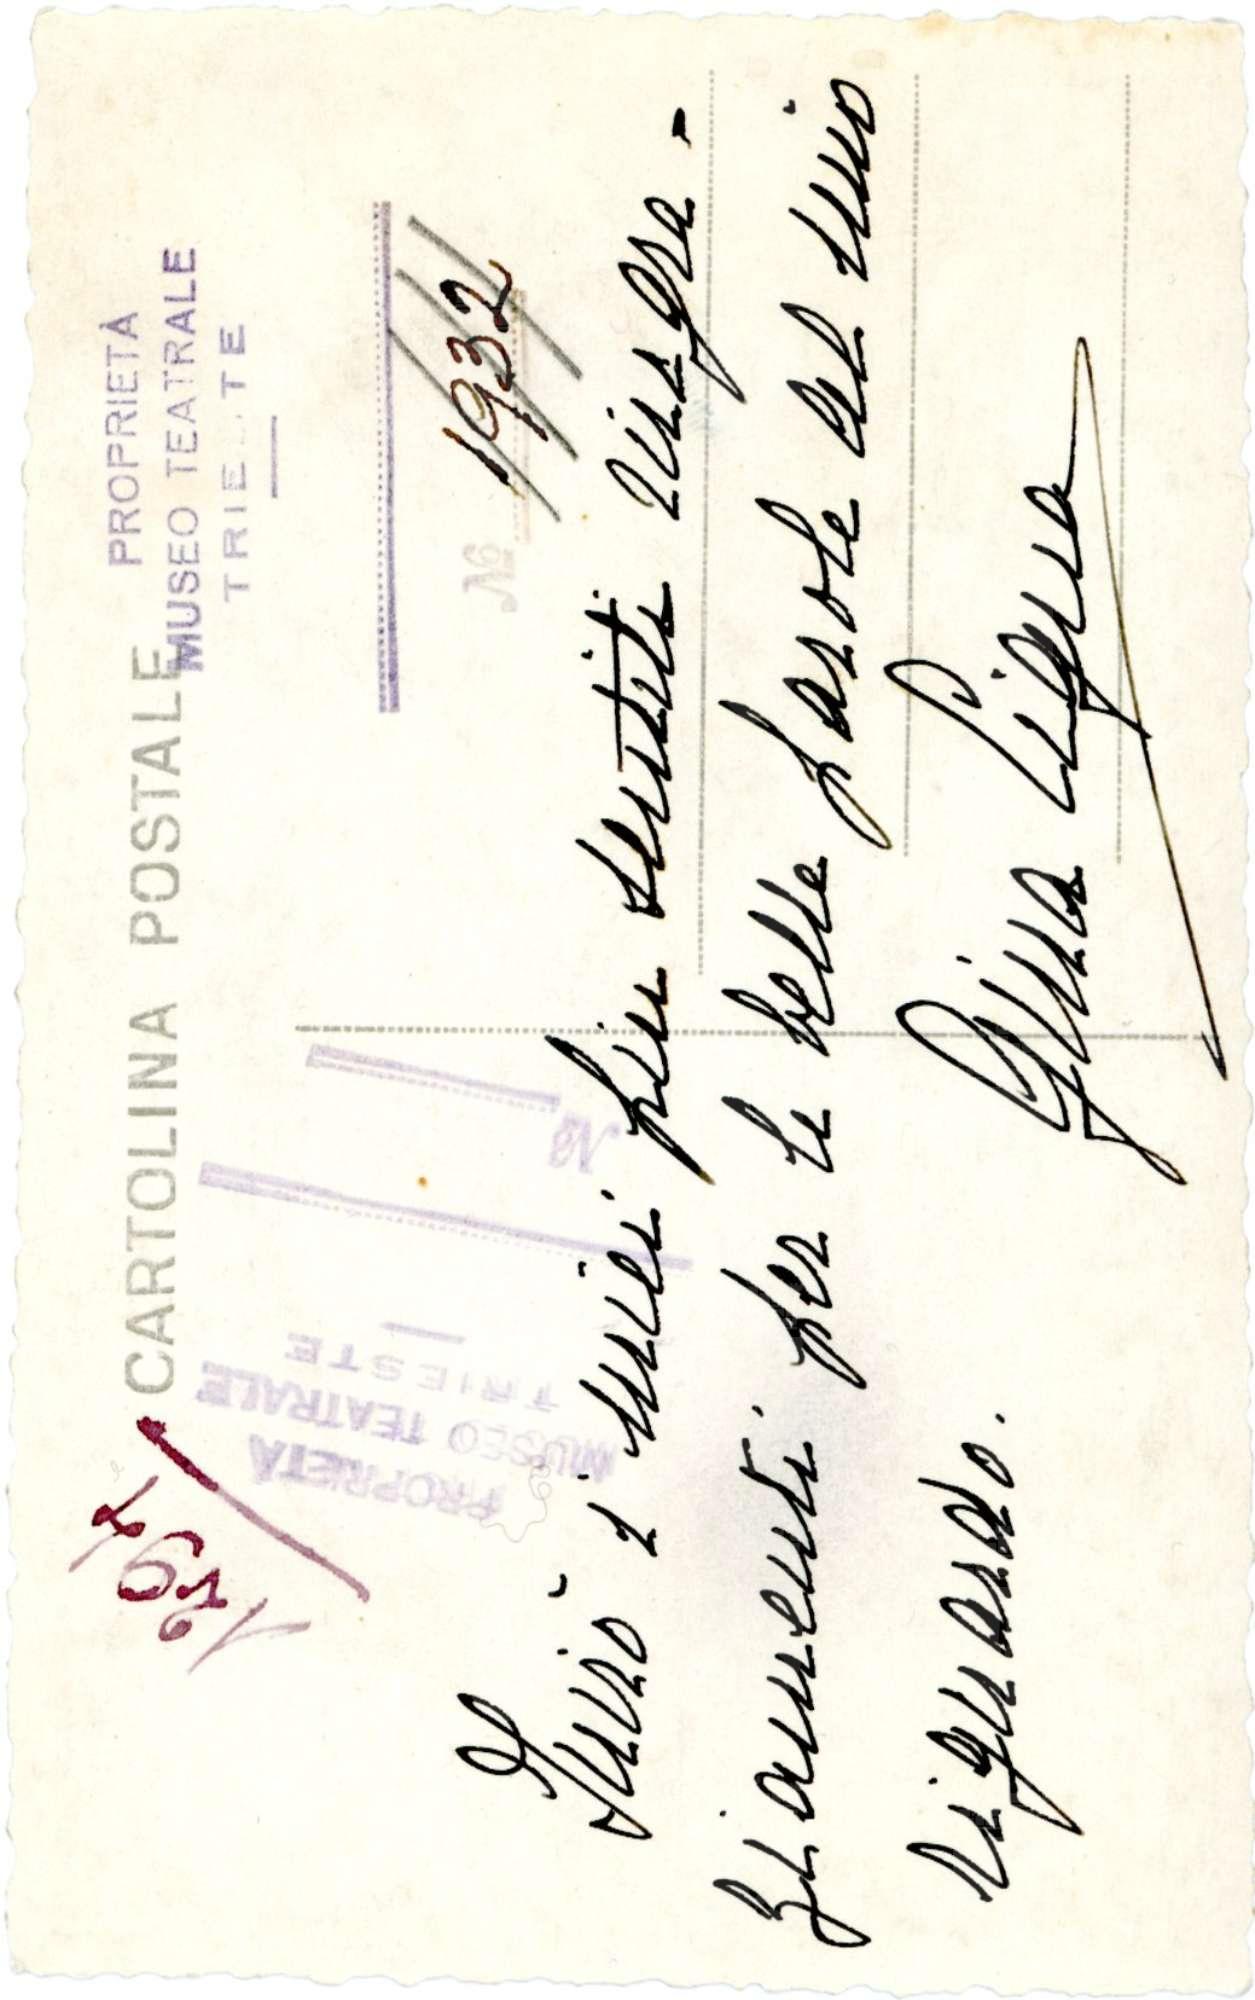 CARTOLINA POSTALE
PROPRIETÀ
MUSEO TEATRALE
TRIESTE
№ 1932
PROPRIETÀ
MUSEO TEATRALE
TRIESTE
№
Invio i miei più sentiti ringra-
ziamenti per le belle parole al mio
riguardo.
Gina Cigna